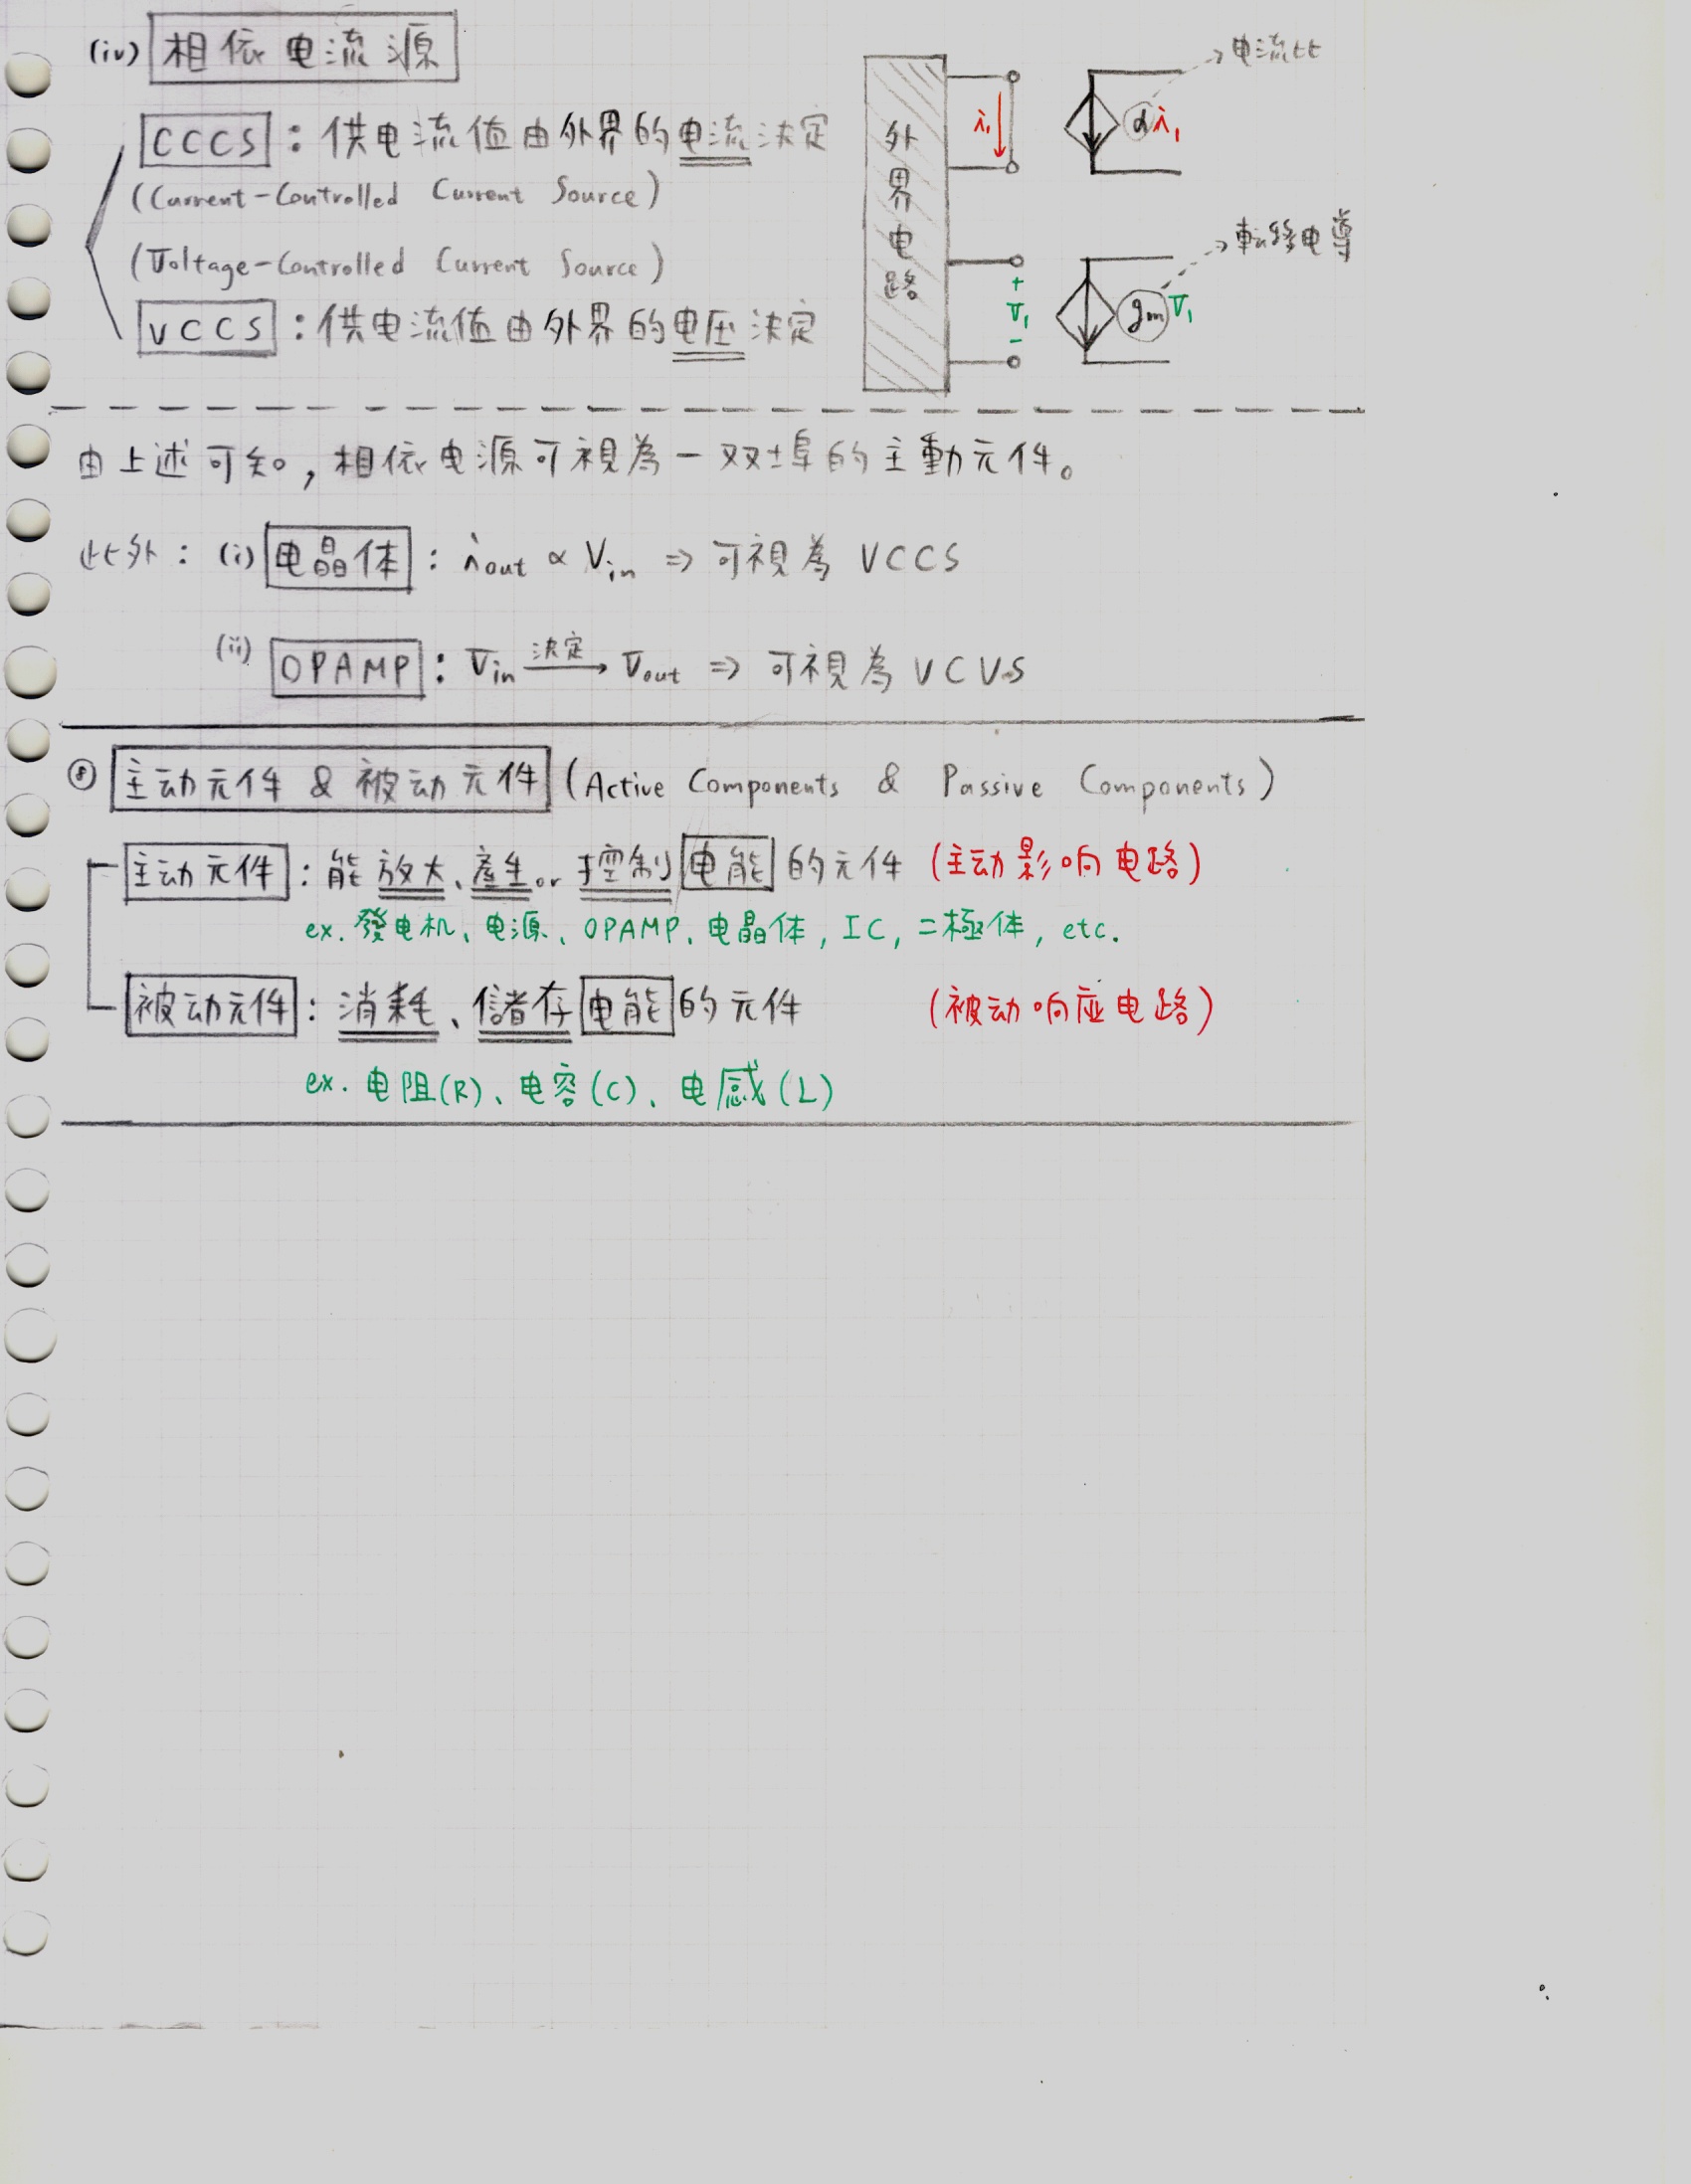 (iv) 相依电流源
CCCS : 供电流值由外界的电流决定
(Current-Controlled Current Source)
(Voltage-Controlled Current Source)
VCCS : 供电流值由外界的电压决定
外界电路
i₁
αi₁
电流比
+
V₁
-
gₘV₁
転移电導
由上述可知,相依电源可視為一双埠的主動元件。
此外 : (i) 电晶体 : i_out ∝ V_in ⇒ 可視為 VCCS
(ii) OPAMP : V_in 决定→ V_out ⇒ 可視為 VCVS
⑧ 主动元件 & 被动元件 (Active Components & Passive Components)
主动元件 : 能放大、產生 or 控制电能的元件 (主动影响电路)
ex. 發电机、电源、OPAMP、电晶体, IC, 二極体, etc.
被动元件 : 消耗、儲存电能的元件 (被动响应电路)
ex. 电阻(R)、电容(C)、电感(L)